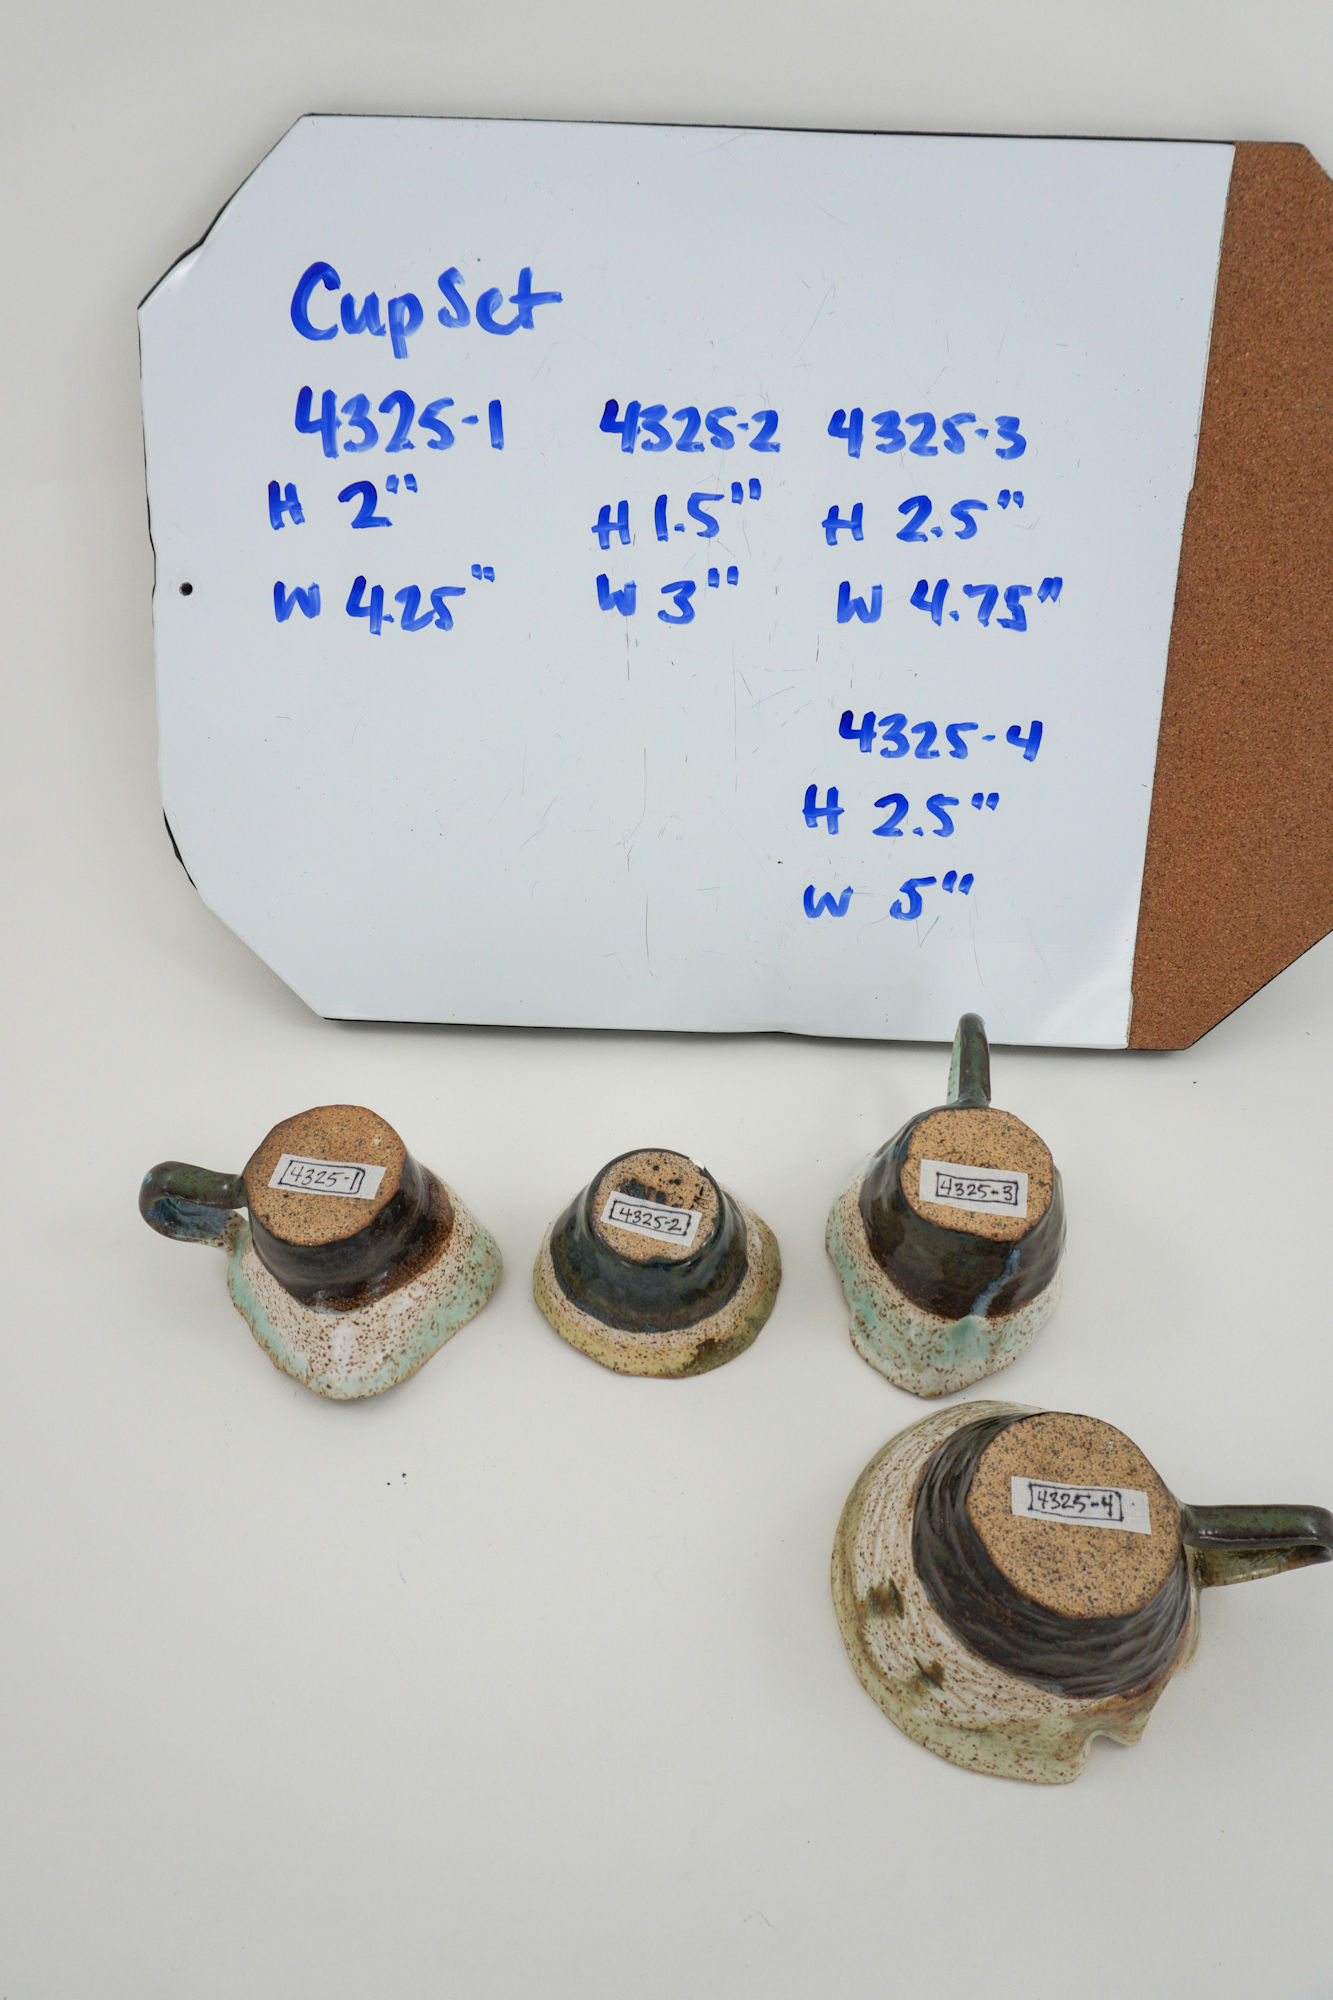 Cup Set
4325-1 4325-2 4325-3
H 2" H 1.5" H 2.5"
W 4.25" W 3" W 4.75"
4325-4
H 2.5"
W 5"
4325-1
4325-2
4325-3
4325-4